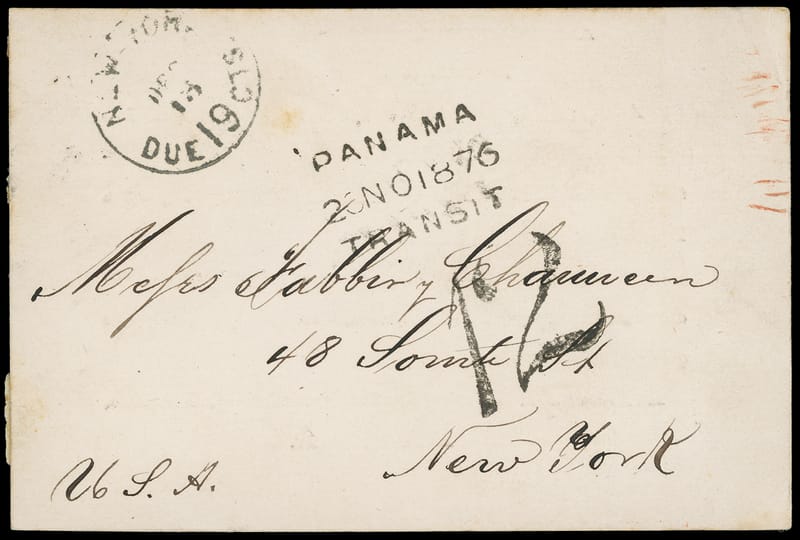 NEW-YORK
DEC
13
DUE 19 CTS
PANAMA
26NO1876
TRANSIT
Messrs Fabbri y Chauncen
12
48 Somte St
New York
U S. A.